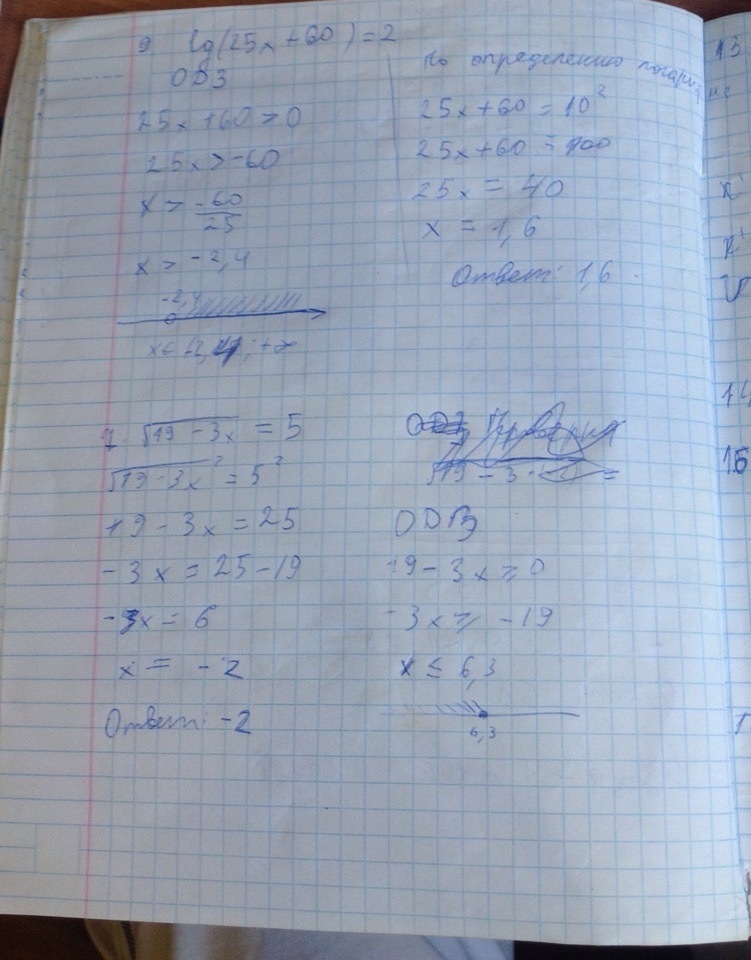 9 lg(25x+60)=2
ОДЗ
25x+60>0
25x>-60
x > -60/25
x > -2,4
-2,4
По определению логарифма
25x+60=10²
25x+60=100
25x=40
x=1,6
Ответ: 1,6.
7. √19-3x = 5
√19-3x² = 5²
19-3x=25
-3x=25-19
-3x=6
x=-2
Ответ: -2
ОДЗ
19-3x≥0
-3x≥-19
x≤6,3
6,3
13
14
15